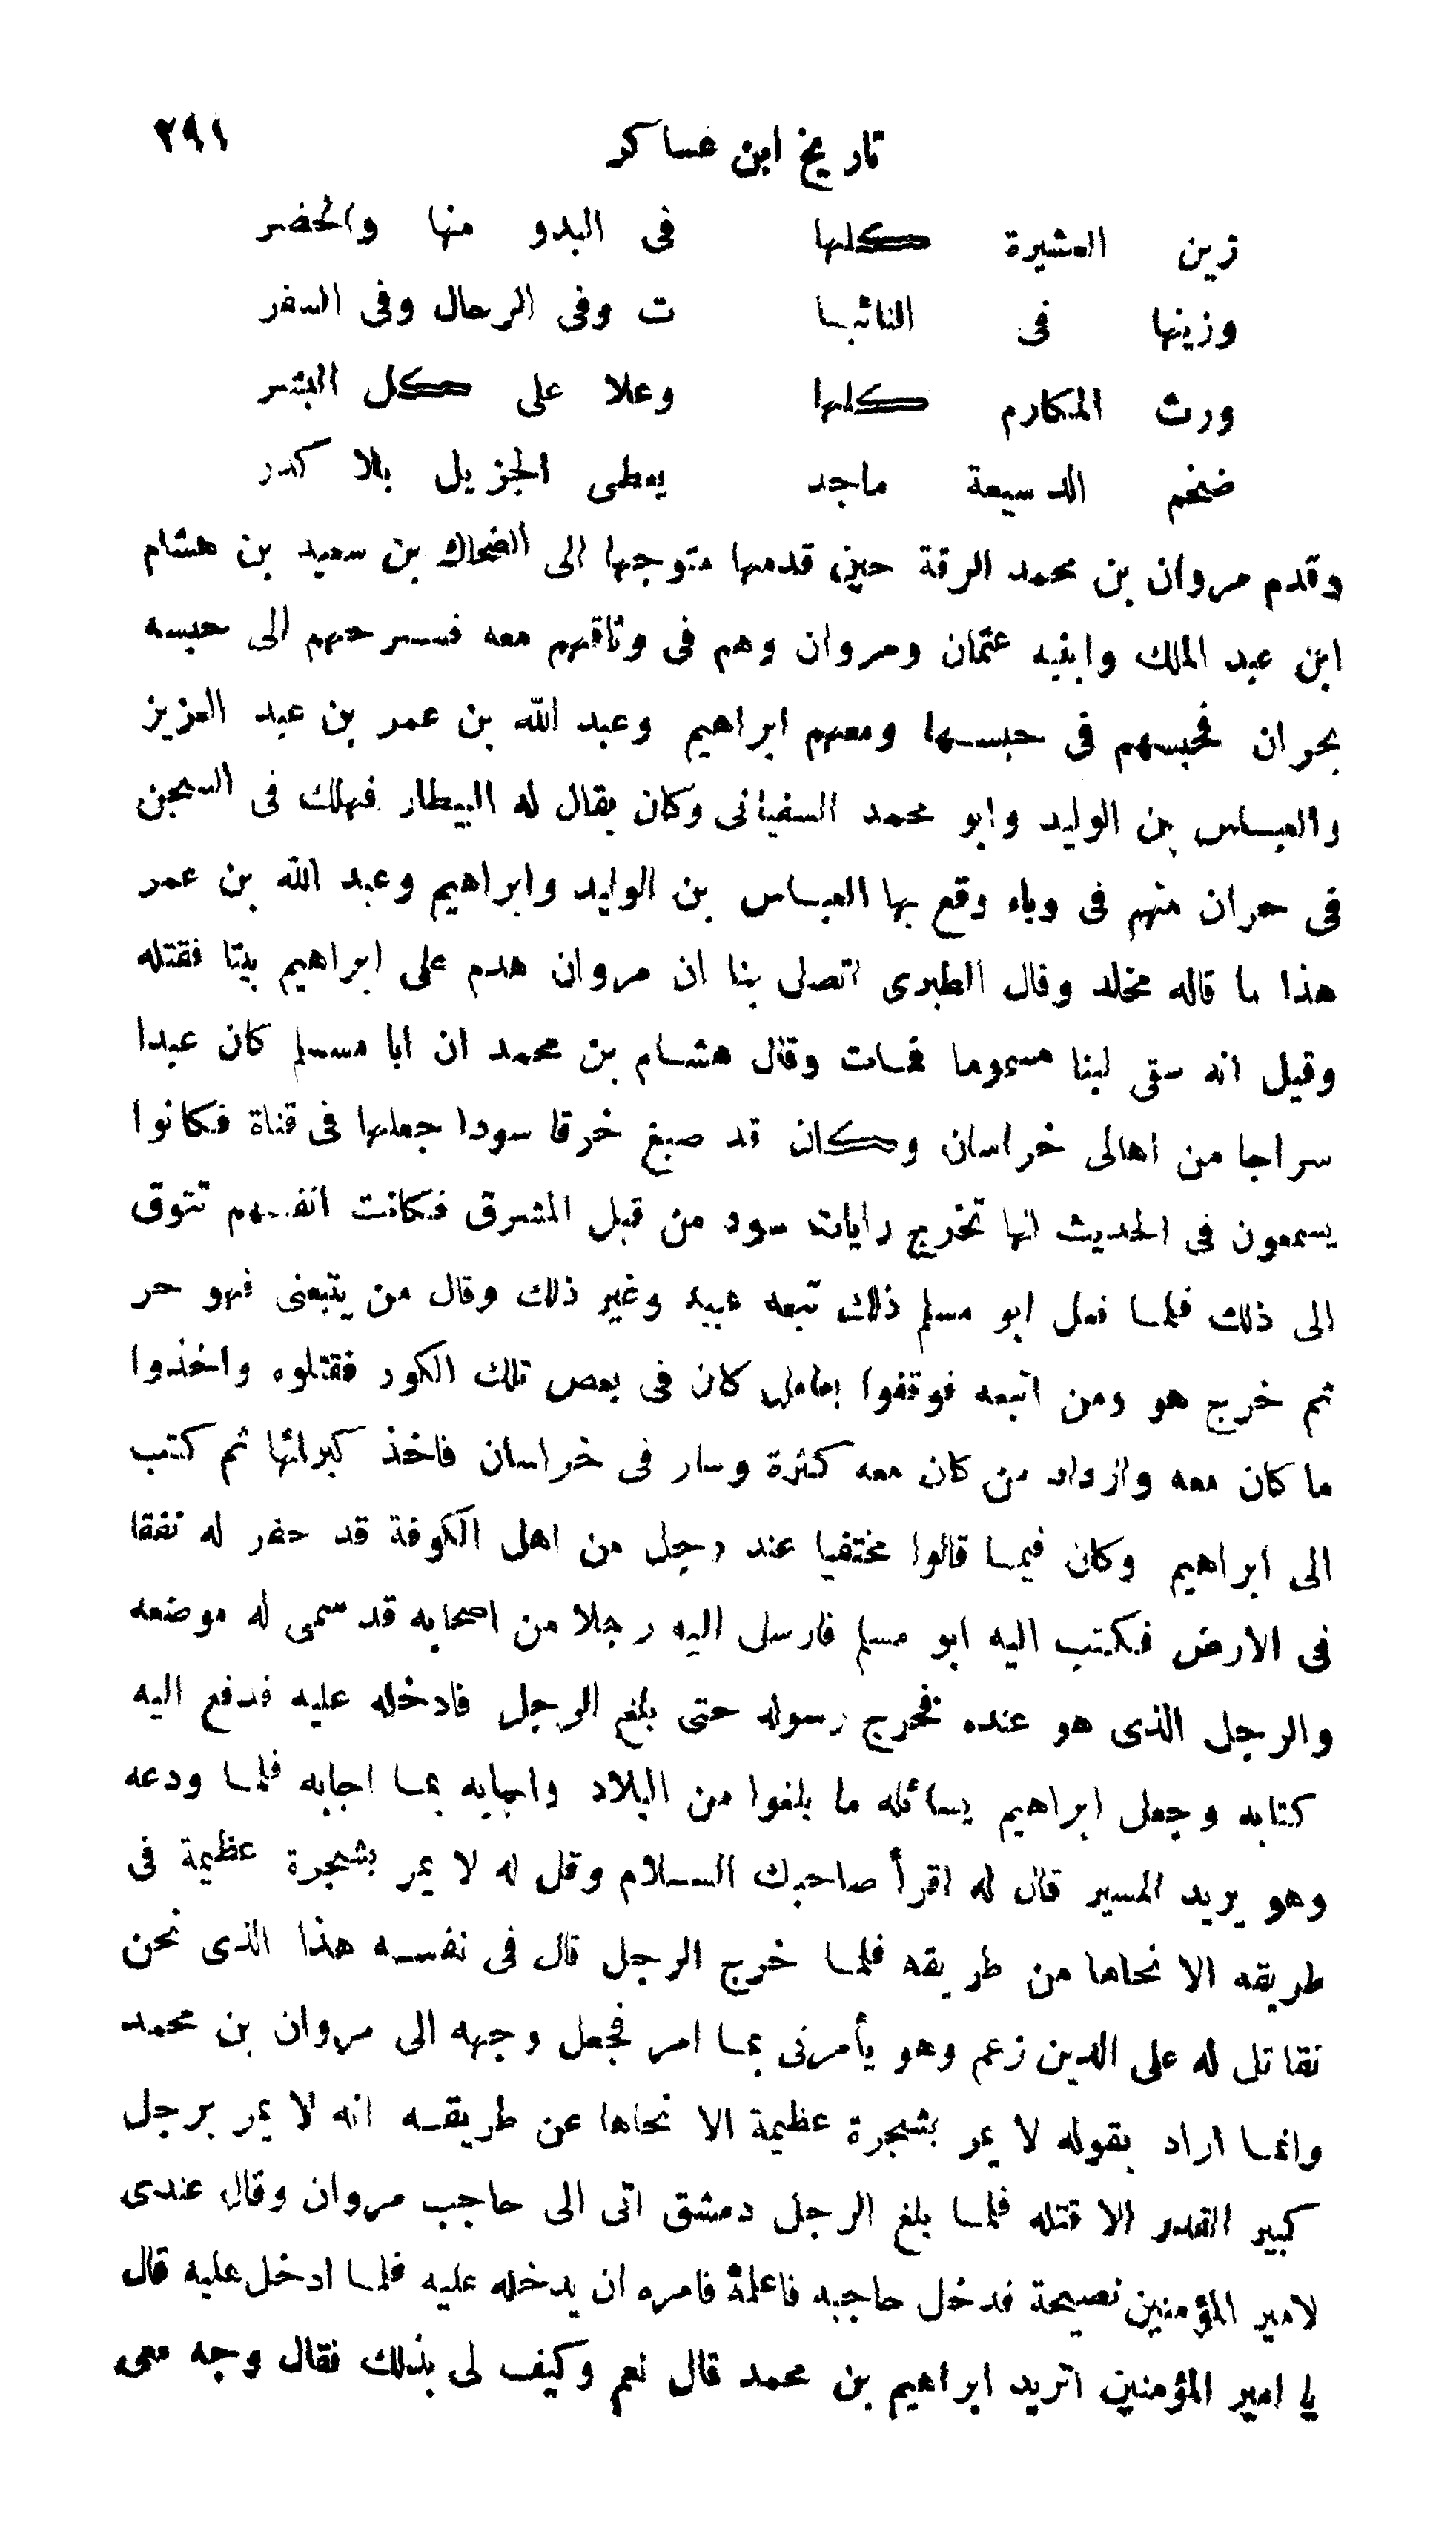 تاريخ ابن عساكر ٢٩١
زين العشيرة كلها في البدو منها والحضر
وزينها في النائبا ت وفي الرحال وفي السفر
ورث المكارم كلها وعلا على كل البشر
ضخم الدسيعة ماجد يعطى الجزيل بلا كدر
وقدم مروان بن محمد الرقة حين قدمها متوجها الى الضحاك بن سعيد بن هشام
ابن عبد الملك وابنيه عثمان ومروان وهم فى وثاقهم معه فسرحهم الى حبسه
بحران فحبسهم فى حبسها ومعهم ابراهيم وعبد الله بن عمر بن عبد العزيز
والعباس بن الوليد وابو محمد السفيانى وكان يقال له البيطار فهلك فى السجن
فى حران منهم فى وباء وقع بها العباس بن الوليد وابراهيم وعبد الله بن عمر
هذا ما قاله مخلد وقال الطبرى اتصل بنا ان مروان هدم على ابراهيم بيتا فقتله
وقيل انه سقى لبنا مسموما فمات وقال هشام بن محمد ان ابا مسلم كان عبدا
سراجا من اهالى خراسان وكان قد صبغ خرقا سودا جعلها فى قناة فكانوا
يسمعون فى الحديث انها تخرج رايات سود من قبل المشرق فكانت انفسهم تتوق
الى ذلك فلما فعل ابو مسلم ذلك تبعه عبيد وغير ذلك وقال من يتبعنى فهو حر
ثم خرج هو ومن اتبعه فوقفوا بعامل كان فى بعض تلك الكور فقتلوه واخذوا
ما كان معه وازداد من كان معه كثرة وسار فى خراسان فاخذ كبرائها ثم كتب
الى ابراهيم وكان فيما قالوا مختفيا عند رجل من اهل الكوفة قد حفر له نفقا
فى الارض فكتب اليه ابو مسلم فارسل اليه رجلا من اصحابه قد سمى له موضعه
والرجل الذى هو عنده فخرج رسوله حتى بلغ الرجل فادخله عليه فدفع اليه
كتابه وجعل ابراهيم يسائله ما بلغوا من البلاد واجابه بما اجابه فلما ودعه
وهو يريد المسير قال له اقرأ صاحبك السلام وقل له لا يمر بشجرة عظيمة فى
طريقه الا نحاها من طريقه فلما خرج الرجل قال فى نفسه هذا الذى نحن
نقاتل له على الدين زعم وهو يأمرنى بما امر فجعل وجهه الى مروان بن محمد
وانما اراد بقوله لا يمر بشجرة عظيمة الا نحاها عن طريقه انه لا يمر برجل
كبير القدر الا قتله فلما بلغ الرجل دمشق اتى الى حاجب مروان وقال عندى
لامير المؤمنين نصيحة فدخل حاجبه فاعلمه فامره ان يدخله عليه فلما ادخل عليه قال
يا امير المؤمنين اتريد ابراهيم بن محمد قال نعم وكيف لى بذلك فقال وجه معى